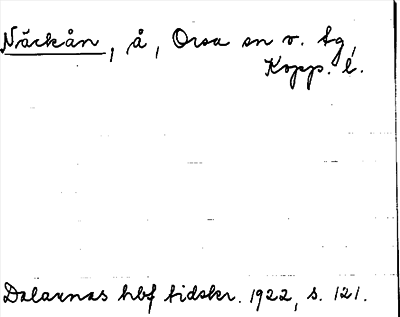 Näckån, å, Orsa sn o. tg,
Kopp. l.
Dalarnas hbf tidskr. 1922, s. 121.